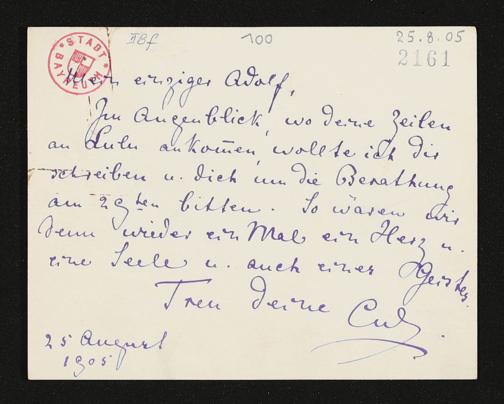 IBf
100
25.8.05
2161
STADT BAYREUTH
Mein einziger Adolf,
Im Augenblick, wo deine Zeilen
an Lulu ankom̄en, wollte ich dir
schreiben u. dich um die Berathung
am 29ten bitten. So wären wir
denn wieder ein Mal ein Herz u.
eine Seele u. auch eines Geistes.
Treu deine
25 August
1905